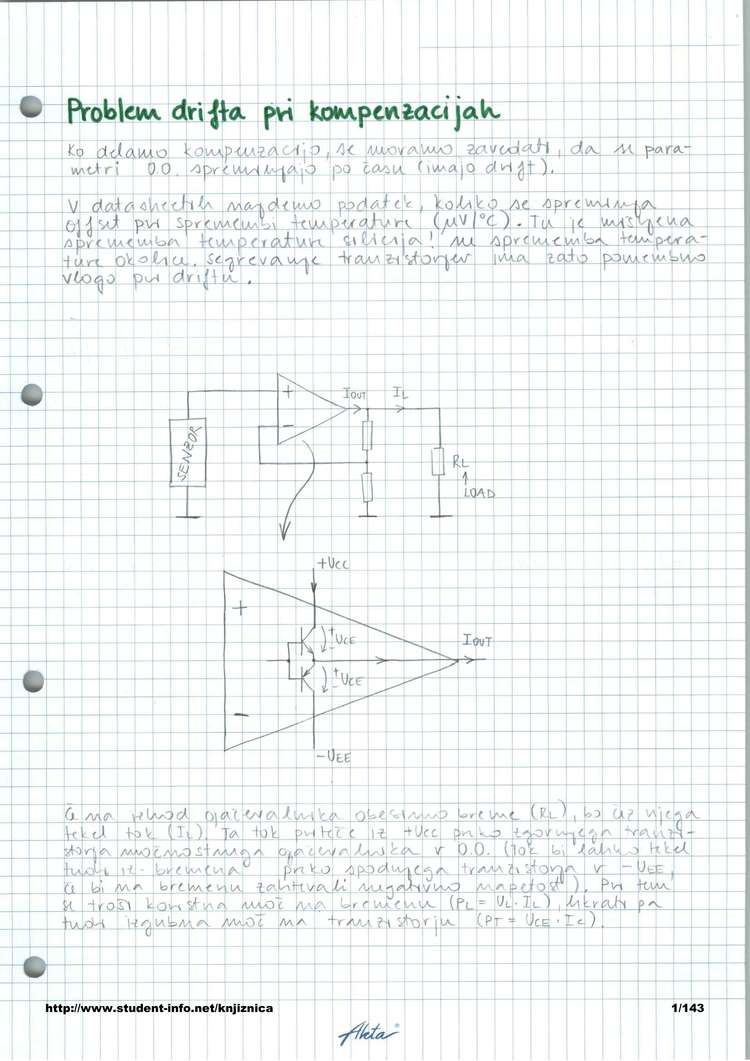 Problem drifta pri kompenzacijah
Ko delamo kompenzacijo, se moramo zavedati, da se para-
metri O.O. spreminjajo po času (imajo drift).
V datasheetih najdemo podatek, koliko se spreminja
offset pri spremembi temperature (μV/°C). Tu je mišljena
sprememba temperature silicija! ne sprememba tempera-
ture okolice. Segrevanje tranzistorjev ima zato pomembno
vlogo pri driftu.
+
IOUT
IL
-
SENZOR
RL
↑
LOAD
+UCC
+
+UCE
IOUT
+UCE
-
-UEE
Če na izhod ojačevalnika obesimo breme (RL), bo čez njega
tekel tok (IL). Ta tok priteče iz +Ucc preko zgornjega tranzi-
storja močnostnega ojačevalnika v O.O. (Tok bi lahko tekel
tudi iz bremena preko spodnjega tranzistorja v -UEE,
če bi na bremenu zahtevali negativno napetost). Pri tem
se troši koristna moč na bremenu (PL = UL · IL), hkrati pa
tudi izgubna moč na tranzistorju (PT = UCE · IC).
http://www.student-info.net/knjiznica
1/143
Akta